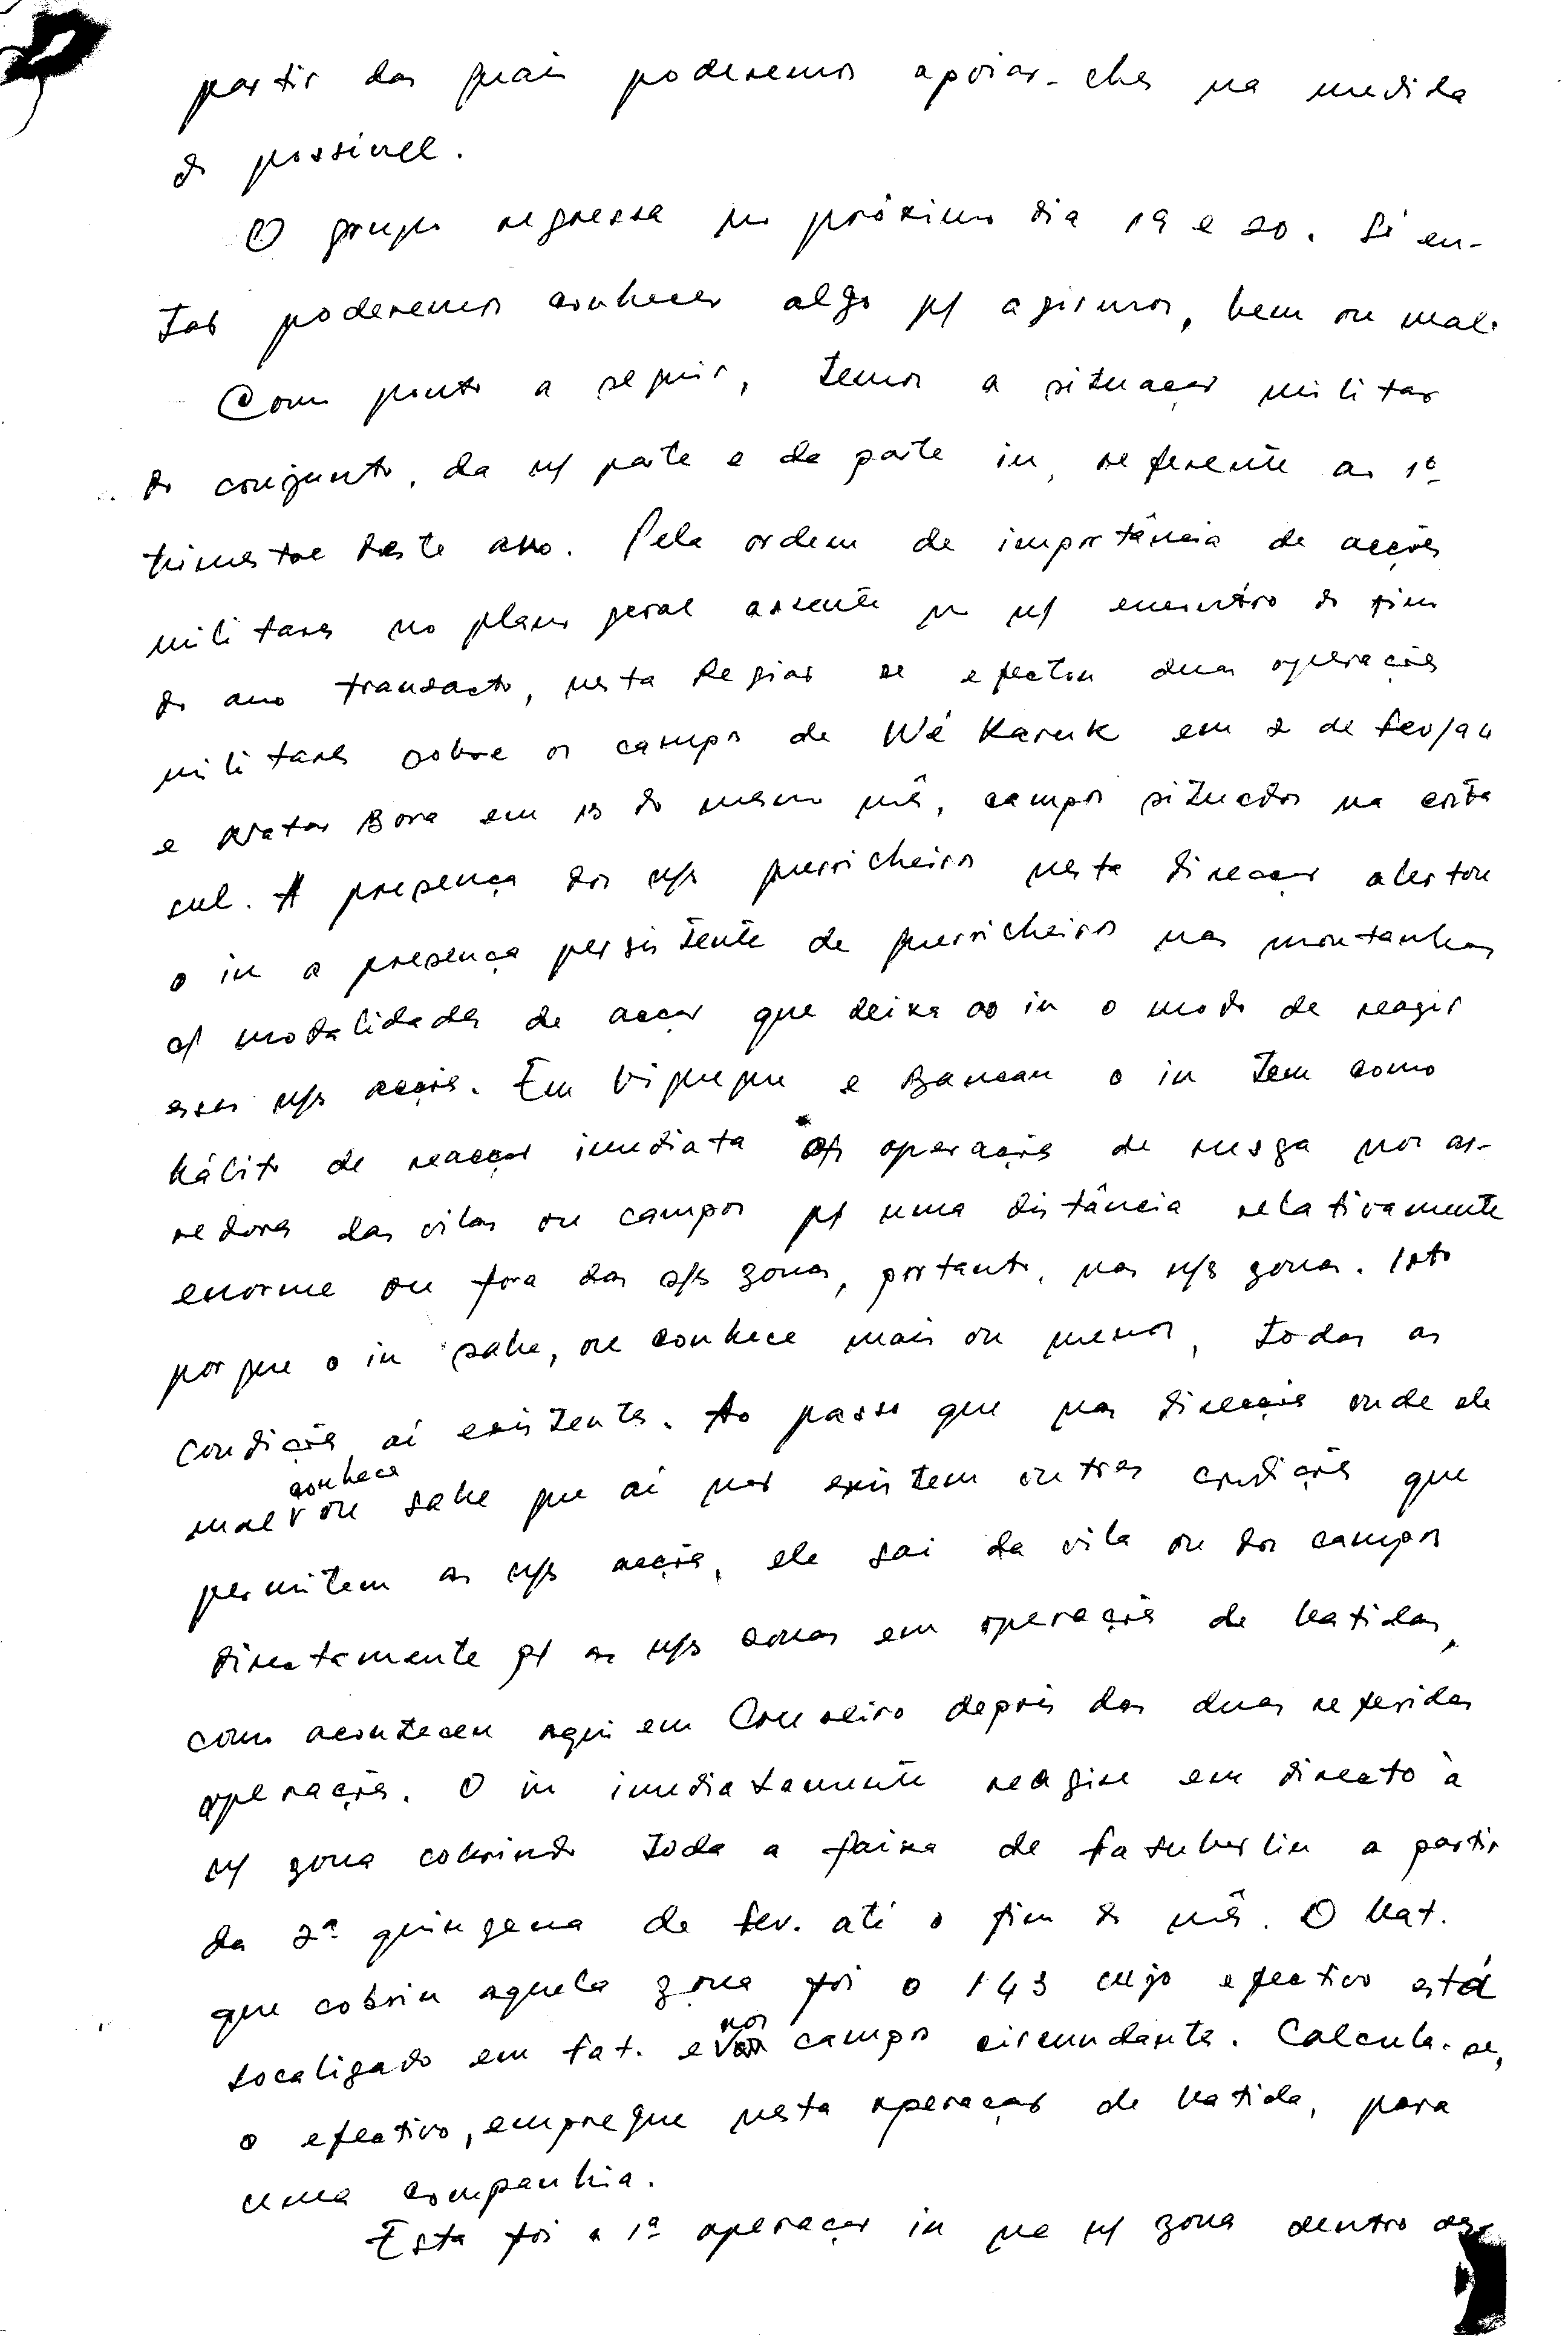 partir das quais poderemos apoiar-lhes na medida
do possivel.
O grupo regressa no próximo dia 19 e 20. Só en-
tão poderemos conhecer algo p/ agirmos, bem ou mal.
Como ponto a seguir, temos a situação militar
do conjunto, da n/ parte e da parte in, referente ao 1º
trimestre deste ano. Pela ordem de importância de acções
militares no plano geral assente no n/ encontro do fim
do ano transacto, nesta Região se efectou duas operações
militares sobre os campos de Wé Karuk em 2 de Fev/94
e Natar Bora em 13 do mesmo mês, campos situados na costa
sul. A presença dos n/s guerrilheiros nesta direcção alertou
o in a presença persistente de guerrilheiros nas montanhas
c/ modalidades de acção que deixa ao in o modo de reagir
essas n/s acções. Em Viqueque e Baucau o in tem como
hábito de reacção imediata operações de rusga nos ar-
redores das vilas ou campos p/ uma distância relativamente
enorme ou fora das s/s zonas, portanto, nas n/s zonas. Isto
porque o in sabe, ou conhece mais ou menos, todas as
condições aí existentes. Ao passo que nas direcções onde ele
conhece
mal v ou sabe que aí não existem outras condições que
permitem as n/s acções, ele sai da vila ou dos campos
directamente p/ as n/s zonas em operações de batidas,
como aconteceu aqui em Cruzeiro depois das duas referidas
operações. O in imediatamente reagiu em directo à
n/ zona cobrindo toda a faixa de Fatuberliu a partir
da 2ª quinzena de Fev. até o fim do mês. O Bat.
que cobriu aquela zona foi o 143 cujo efectivo está
localizado em Fat. e
nos
campos circundantes. Calcula-se,
o efectivo, empregue nesta operação de batida, para
uma companhia.
Esta foi a 1ª operação in na n/ zona dentro